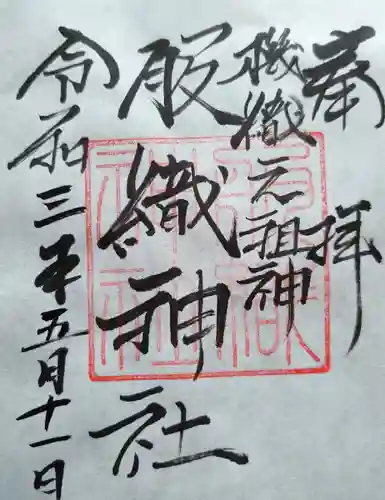 奉拝
機織元祖神
服織神社
令和三年五月十一日